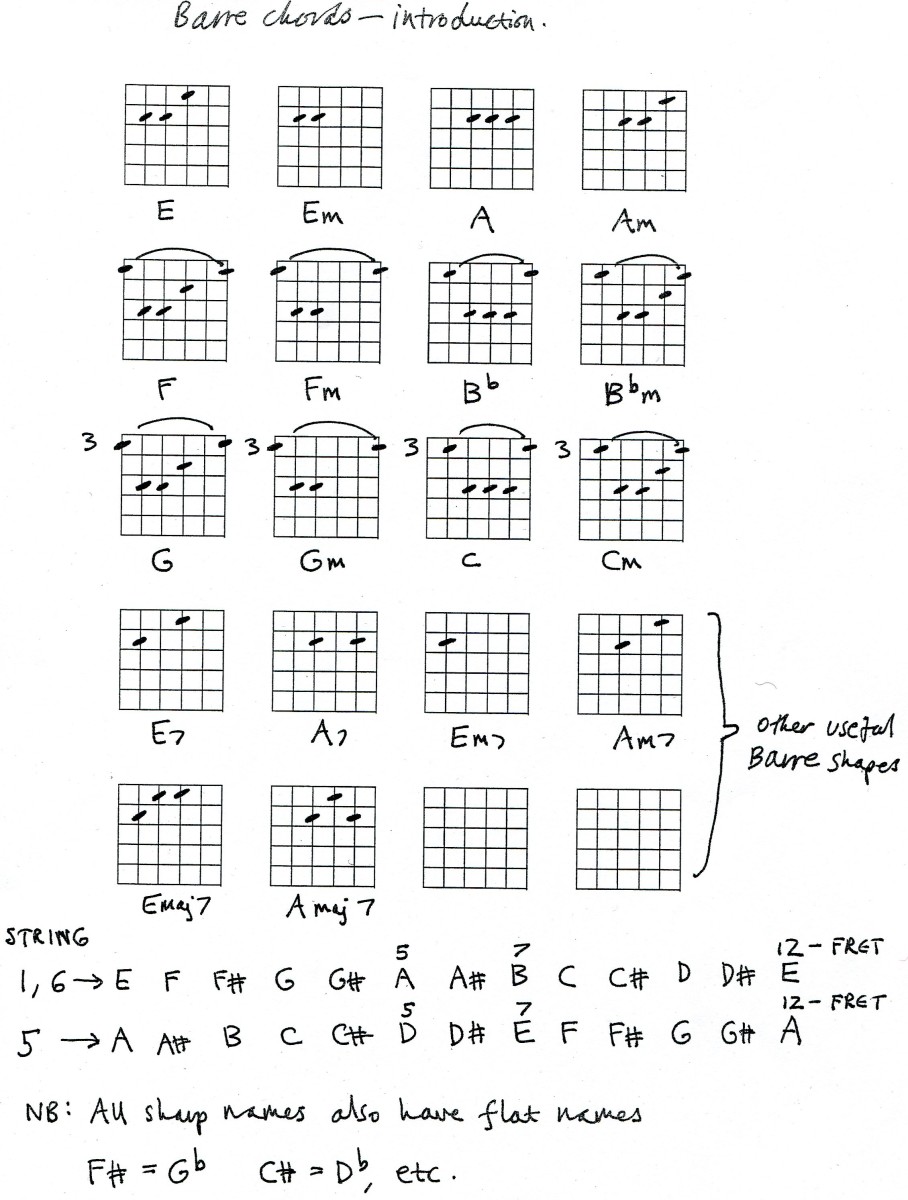 Barre chords – introduction.
E Em A Am
F Fm B♭ B♭m
3 3 3 3
G Gm C Cm
E7 A7 Em7 Am7
other useful
Barre shapes
Emaj7 Amaj7
STRING
5 7 12 – FRET
1, 6 → E F F# G G# A A# B C C# D D# E
5 7 12 – FRET
5 → A A# B C C# D D# E F F# G G# A
NB: All sharp names also have flat names
F# = G♭ C# = D♭, etc.